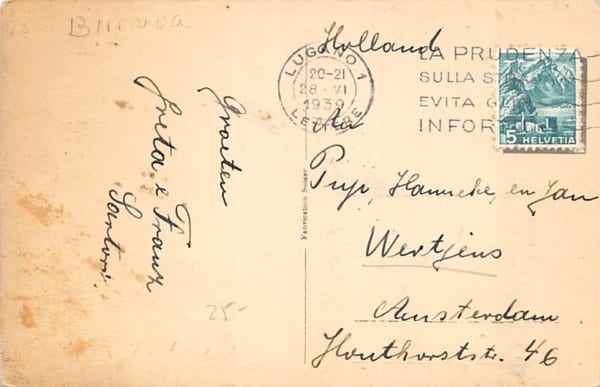 Groeten
Greta e Franz
Sartori.
25-
Fabrication Suisse
Holland
LUGANO 1
20-21
28·VI
1939
LETTERE
LA PRUDENZA
SULLA
EVITA
INFOR
5 HELVETIA
Aan
Pup, Hanneke, en Jan
Wertjens
Amsterdam
Honthorststr. 46